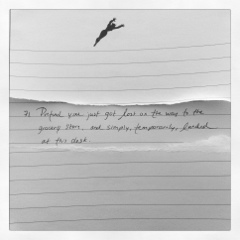 Pretend you just got lost on the way to the
grocery store and simply, temporarily, landed
at this desk.